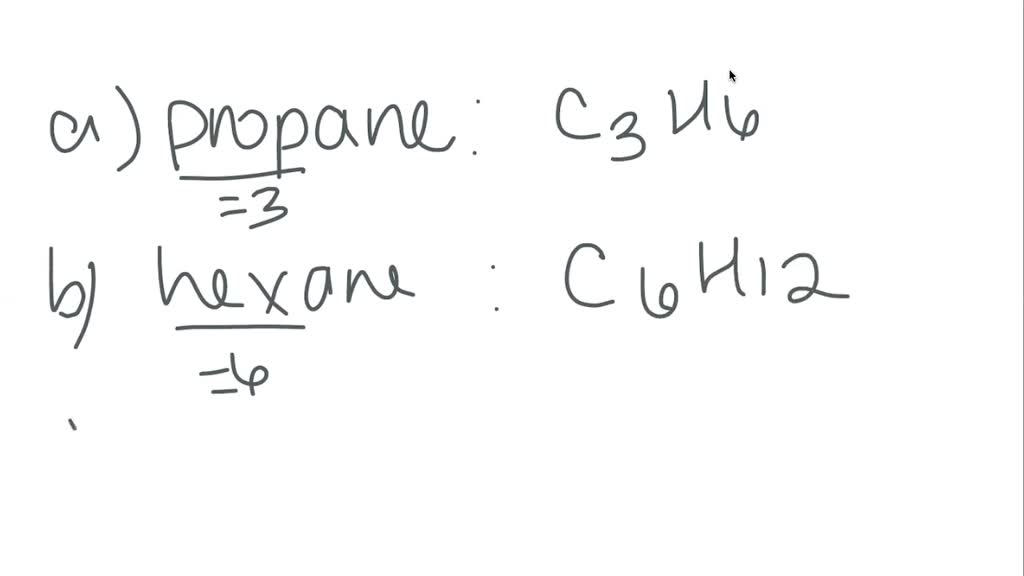 a) propane : C3H6
=3
b) hexane : C6H12
=6